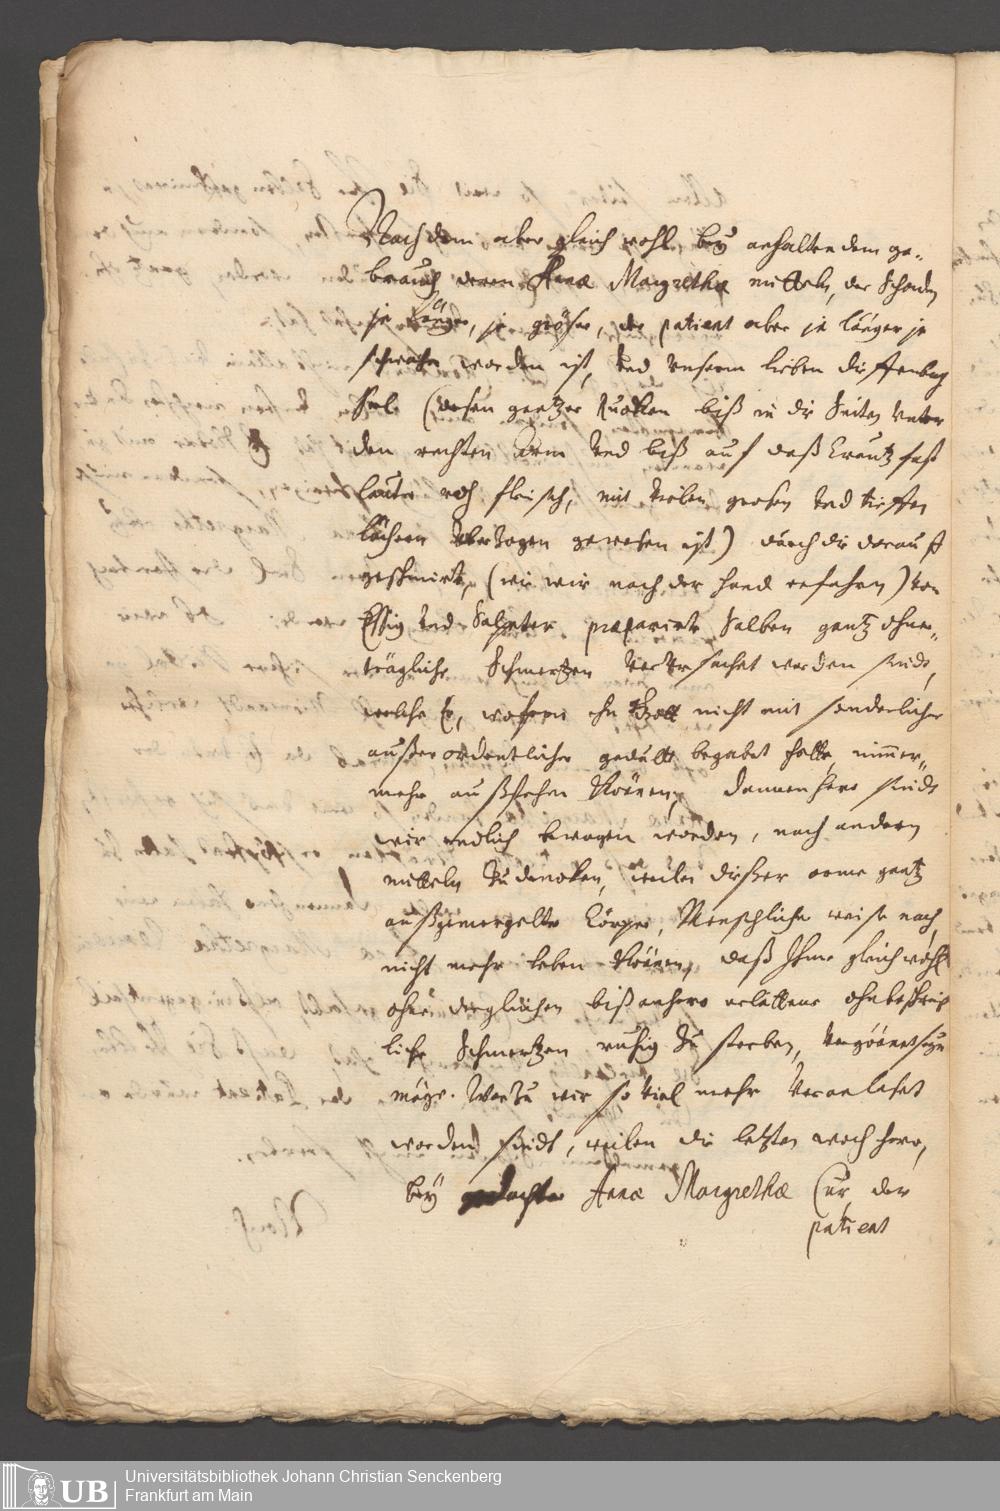 Nachdem aber gleich wohl bey anhaltendem ge-
brauch deren Annæ Margrethæ mitteln, der Schaden
je länger, je größer, der patient aber je länger je
schwächer worden ist, und unserm lieben
(dessen gantzer Rucken biß in die Seiten unter
den rechten Arm und biß auf daß Creutz fast
lauter roh fleisch, mit vielen grosen und tieffen
löchern überzogen gewesen ist) durch die darauff
geschmirte, (wie wir nach der hand erfahren) von
Essig und Salpeter præparirte Salben gantz ohner-
trägliche Schmertzen verursachet worden sindt,
welche Er, wofern ihn Gott nicht mit sonderlicher
außerordentlicher gedult begabet hätte, nimmer-
mehr außstehen können, dannenhero sindt
wir endlich bewogen worden, nach andern
mitteln zu dencken, weilen dießer arme gantz
außgemergelte Cörper, Menschlicher weise nach,
nicht mehr leben können, daß Ihme gleichwohl
ohne dergleichen biß anhero erlittene ohnbeschreib
liche Schmertzen ruhig zu sterben, vergönnet seyn
möge. Warzu wir so viel mehr veranlaset
worden sindt, weilen die letzten woch hero,
bey gedachter Annæ Margrethæ Cur der
patient
Universitätsbibliothek Johann Christian Senckenberg
Frankfurt am Main
UB